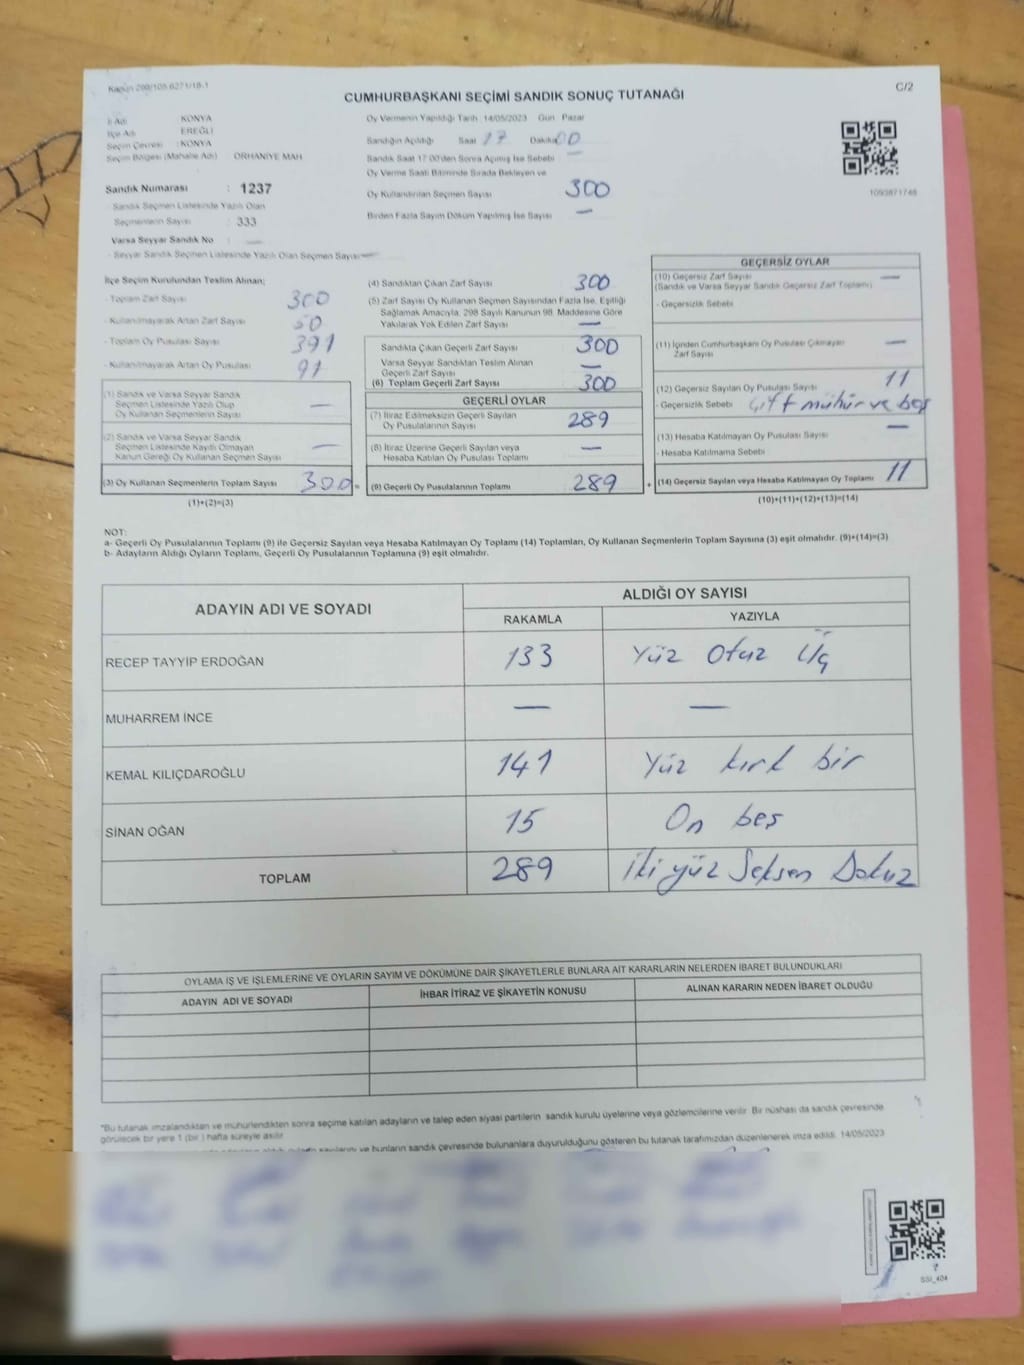 C/2
CUMHURBAŞKANI SEÇİMİ SANDIK SONUÇ TUTANAĞI
İl Adı KONYA
İlçe Adı EREĞLİ
Seçim Çevresi : KONYA
Seçim Bölgesi (Mahalle Adı) ORHANİYE MAH
Sandık Numarası : 1237
Sandık Seçmen Listesinde Yazılı Olan
Seçmenlerin Sayısı : 333
Varsa Seyyar Sandık No : —
- Seyyar Sandık Seçmen Listesinde Yazılı Olan Seçmen Sayısı —
Oy Vermenin Yapıldığı Tarih 14/05/2023 Gün Pazar
Sandığın Açıldığı Saat 17 Dakika 00
Sandık Saat 17:00'den Sonra Açılmış İse Sebebi —
Oy Verme Saati Bitiminde Sırada Bekleyen ve
Oy Kullandırılan Seçmen Sayısı 300
Birden Fazla Sayım Döküm Yapılmış İse Sayısı —
1093871748
İlçe Seçim Kurulundan Teslim Alınan;
- Toplam Zarf Sayısı 300
- Kullanılmayarak Artan Zarf Sayısı 50
- Toplam Oy Pusulası Sayısı 391
- Kullanılmayarak Artan Oy Pusulası 91
(1) Sandık ve Varsa Seyyar Sandık
Seçmen Listesinde Yazılı Olup
Oy Kullanan Seçmenlerin Sayısı —
(2) Sandık ve Varsa Seyyar Sandık
Seçmen Listesinde Kayıtlı Olmayan
Kanun Gereği Oy Kullanan Seçmen Sayısı —
(3) Oy Kullanan Seçmenlerin Toplam Sayısı 300 =
(1)+(2)=(3)
(4) Sandıktan Çıkan Zarf Sayısı 300
(5) Zarf Sayısı Oy Kullanan Seçmen Sayısından Fazla İse, Eşitliği
Sağlamak Amacıyla, 298 Sayılı Kanunun 98. Maddesine Göre
Yakılarak Yok Edilen Zarf Sayısı —
Sandıkta Çıkan Geçerli Zarf Sayısı 300
Varsa Seyyar Sandıktan Teslim Alınan
Geçerli Zarf Sayısı —
(6) Toplam Geçerli Zarf Sayısı 300
GEÇERLİ OYLAR
(7) İtiraz Edilmeksizin Geçerli Sayılan
Oy Pusulalarının Sayısı 289
(8) İtiraz Üzerine Geçerli Sayılan veya
Hesaba Katılan Oy Pusulası Toplamı —
(9) Geçerli Oy Pusulalarının Toplamı 289 +
GEÇERSİZ OYLAR
(10) Geçersiz Zarf Sayısı —
(Sandık ve Varsa Seyyar Sandık Geçersiz Zarf Toplamı)
- Geçersizlik Sebebi
(11) İçinden Cumhurbaşkanı Oy Pusulası Çıkmayan
Zarf Sayısı —
(12) Geçersiz Sayılan Oy Pusulası Sayısı 11
- Geçersizlik Sebebi Çift mühür ve boş
(13) Hesaba Katılmayan Oy Pusulası Sayısı —
- Hesaba Katılmama Sebebi
(14) Geçersiz Sayılan veya Hesaba Katılmayan Oy Toplamı 11
(10)+(11)+(12)+(13)=(14)
NOT:
a- Geçerli Oy Pusulalarının Toplamı (9) ile Geçersiz Sayılan veya Hesaba Katılmayan Oy Toplamı (14) Toplamları, Oy Kullanan Seçmenlerin Toplam Sayısına (3) eşit olmalıdır. (9)+(14)=(3)
b- Adayların Aldığı Oyların Toplamı, Geçerli Oy Pusulalarının Toplamına (9) eşit olmalıdır.
ADAYIN ADI VE SOYADI
ALDIĞI OY SAYISI
RAKAMLA YAZIYLA
RECEP TAYYİP ERDOĞAN 133 Yüz Otuz Üç
MUHARREM İNCE — —
KEMAL KILIÇDAROĞLU 141 Yüz kırk bir
SİNAN OĞAN 15 On beş
TOPLAM 289 İki yüz Seksen Dokuz
OYLAMA İŞ VE İŞLEMLERİNE VE OYLARIN SAYIM VE DÖKÜMÜNE DAİR ŞİKAYETLERLE BUNLARA AİT KARARLARIN NELERDEN İBARET BULUNDUKLARI
ADAYIN ADI VE SOYADI İHBAR İTİRAZ VE ŞİKAYETİN KONUSU ALINAN KARARIN NEDEN İBARET OLDUĞU
"Bu tutanak imzalandıktan ve mühürlendikten sonra seçime katılan adayların ve talep eden siyasi partilerin sandık kurulu üyelerine veya gözlemcilerine verilir. Bir nüshası da sandık çevresinde
görülecek bir yere 1 (bir ) hafta süreyle asılır
sayılarını ve bunların sandık çevresinde bulunanlara duyurulduğunu gösteren bu tutanak tarafımızdan düzenlenerek imza edildi. 14/05/2023
SSI_404